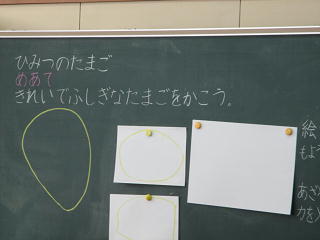 ひみつのたまご
めあて
きれいでふしぎなたまごをかこう。
絵
もよう
あざ
かを